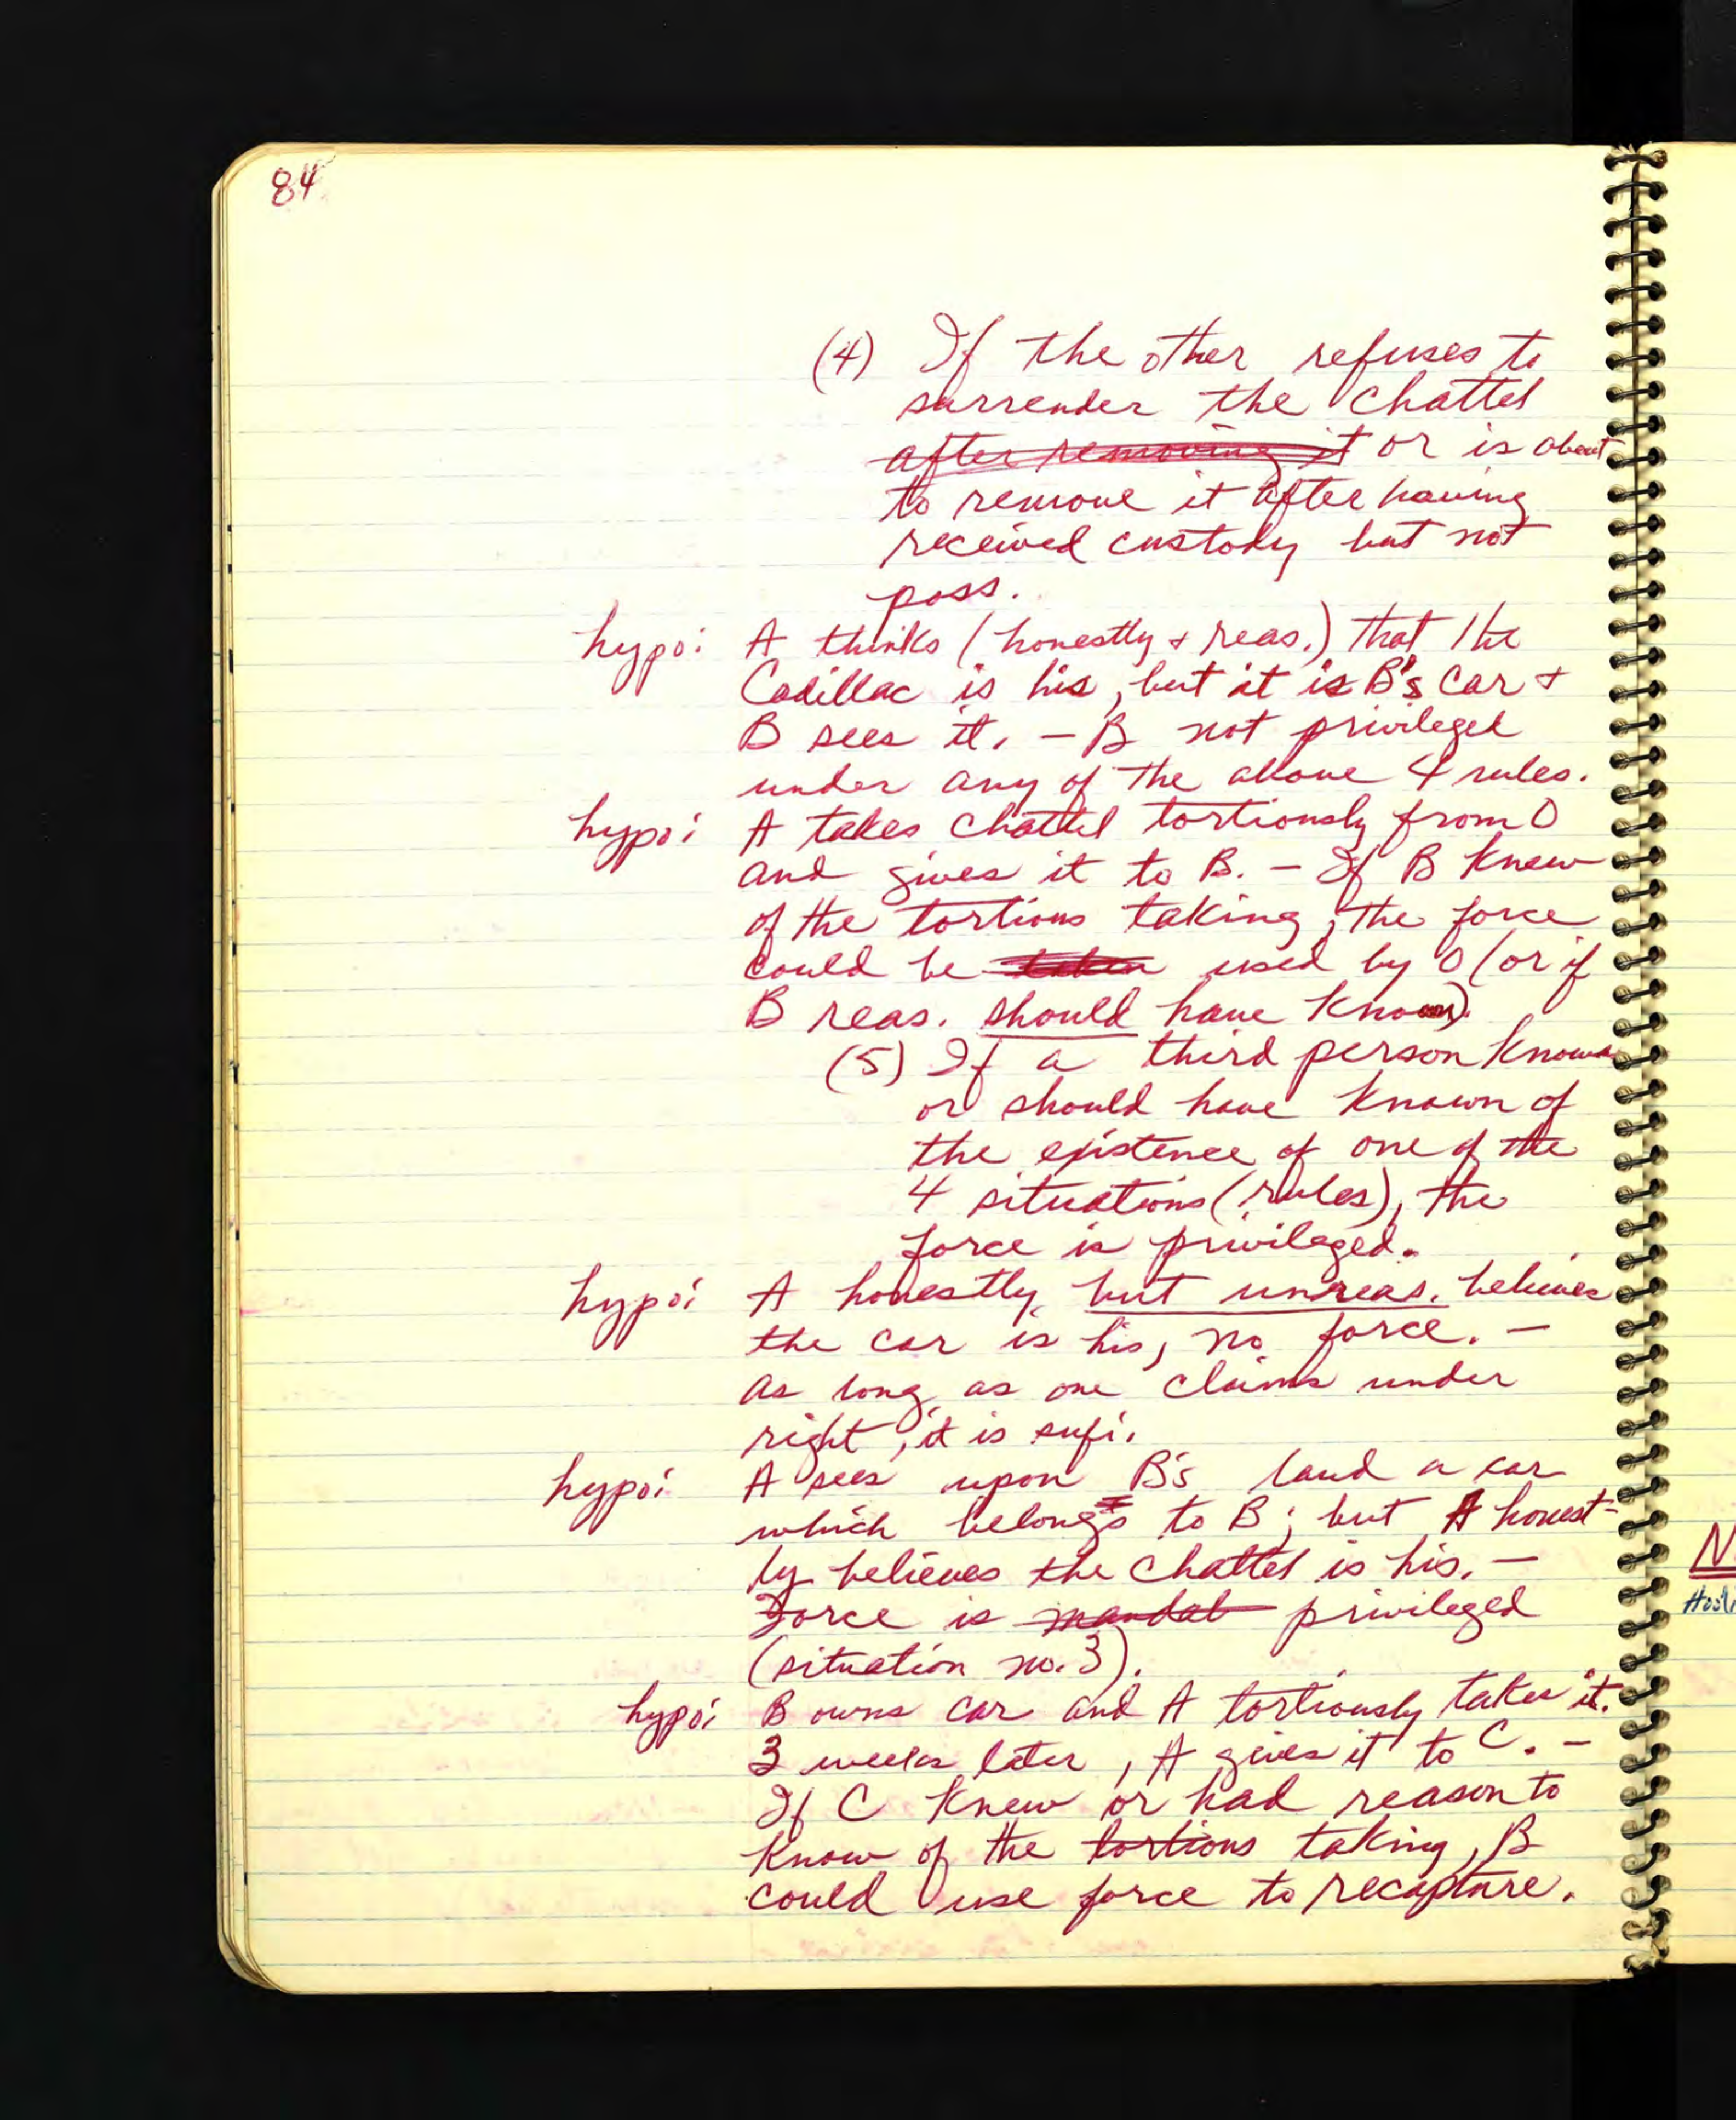 84
(4) If the other refuses to
surrender the chattel
after removing it or is about
to remove it after having
received custody but not
poss.
hypo: A thinks (honestly + reas.) that the
Cadillac is his, but it is B's car +
B sees it. - B not privileged
under any of the above 4 rules.
hypo: A takes chattel tortiously from O
and gives it to B. - If B knew
of the tortious taking, the force
could be taken used by O (or if
B reas. should have known).
(5) If a third person knows
or should have known of
the existence of one of the
4 situations (rules), the
force is privileged.
hypo: A honestly but unreas. believes
the car is his, no force. -
As long as one claims under
right, it is sufi.
hypo: A sees upon B's land a car
which belongs to B; but A honest-
ly believes the chattel is his. -
Force is mandat privileged
(situation no. 3).
hypo: B owns car and A tortiously takes it.
3 weeks later, A gives it to C. -
If C knew or had reason to
know of the tortious taking, B
could use force to recapture.